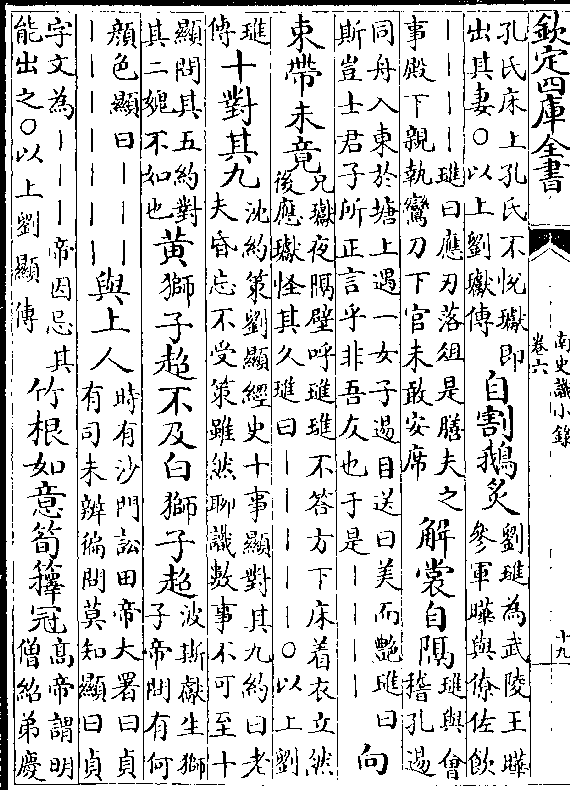 欽定四庫全書
南史識小錄
卷六
十九
孔氏床上孔氏不悅瓛即
出其妻○以上劉瓛傳
自割鵝炙
劉璡為武陵王曄
參軍曄與僚佐飲
｜｜｜｜璡曰應刃落俎是膳夫之
事殿下親執鸞刀下官未敢安席
解裳自隔
璡與會
稽孔逷
同舟入東於塘上遇一女子逷目送曰美而艷璡曰
斯豈士君子所正言乎非吾友也于是｜｜｜｜
向
束帶未竟
兄瓛夜隔壁呼璡璡不答方下床着衣立然
後應瓛怪其久璡曰｜｜｜｜○以上劉
璡
傳
十對其九
沈約策劉顯經史十事顯對其九約曰老
夫昏忘不受策雖然聊識數事不可至十
顯問其五約對
其二媿不如也
黃獅子超不及白獅子超
波斯獻生獅
子帝問有何
顏色顯曰｜｜
｜｜｜｜｜｜｜
與上人
時有沙門訟田帝大署曰貞
有司未辨徧問莫知顯曰貞
字文為｜｜｜帝因忌其
能出之○以上劉顯傳
竹根如意筍籜冠
高帝謂明
僧紹弟慶